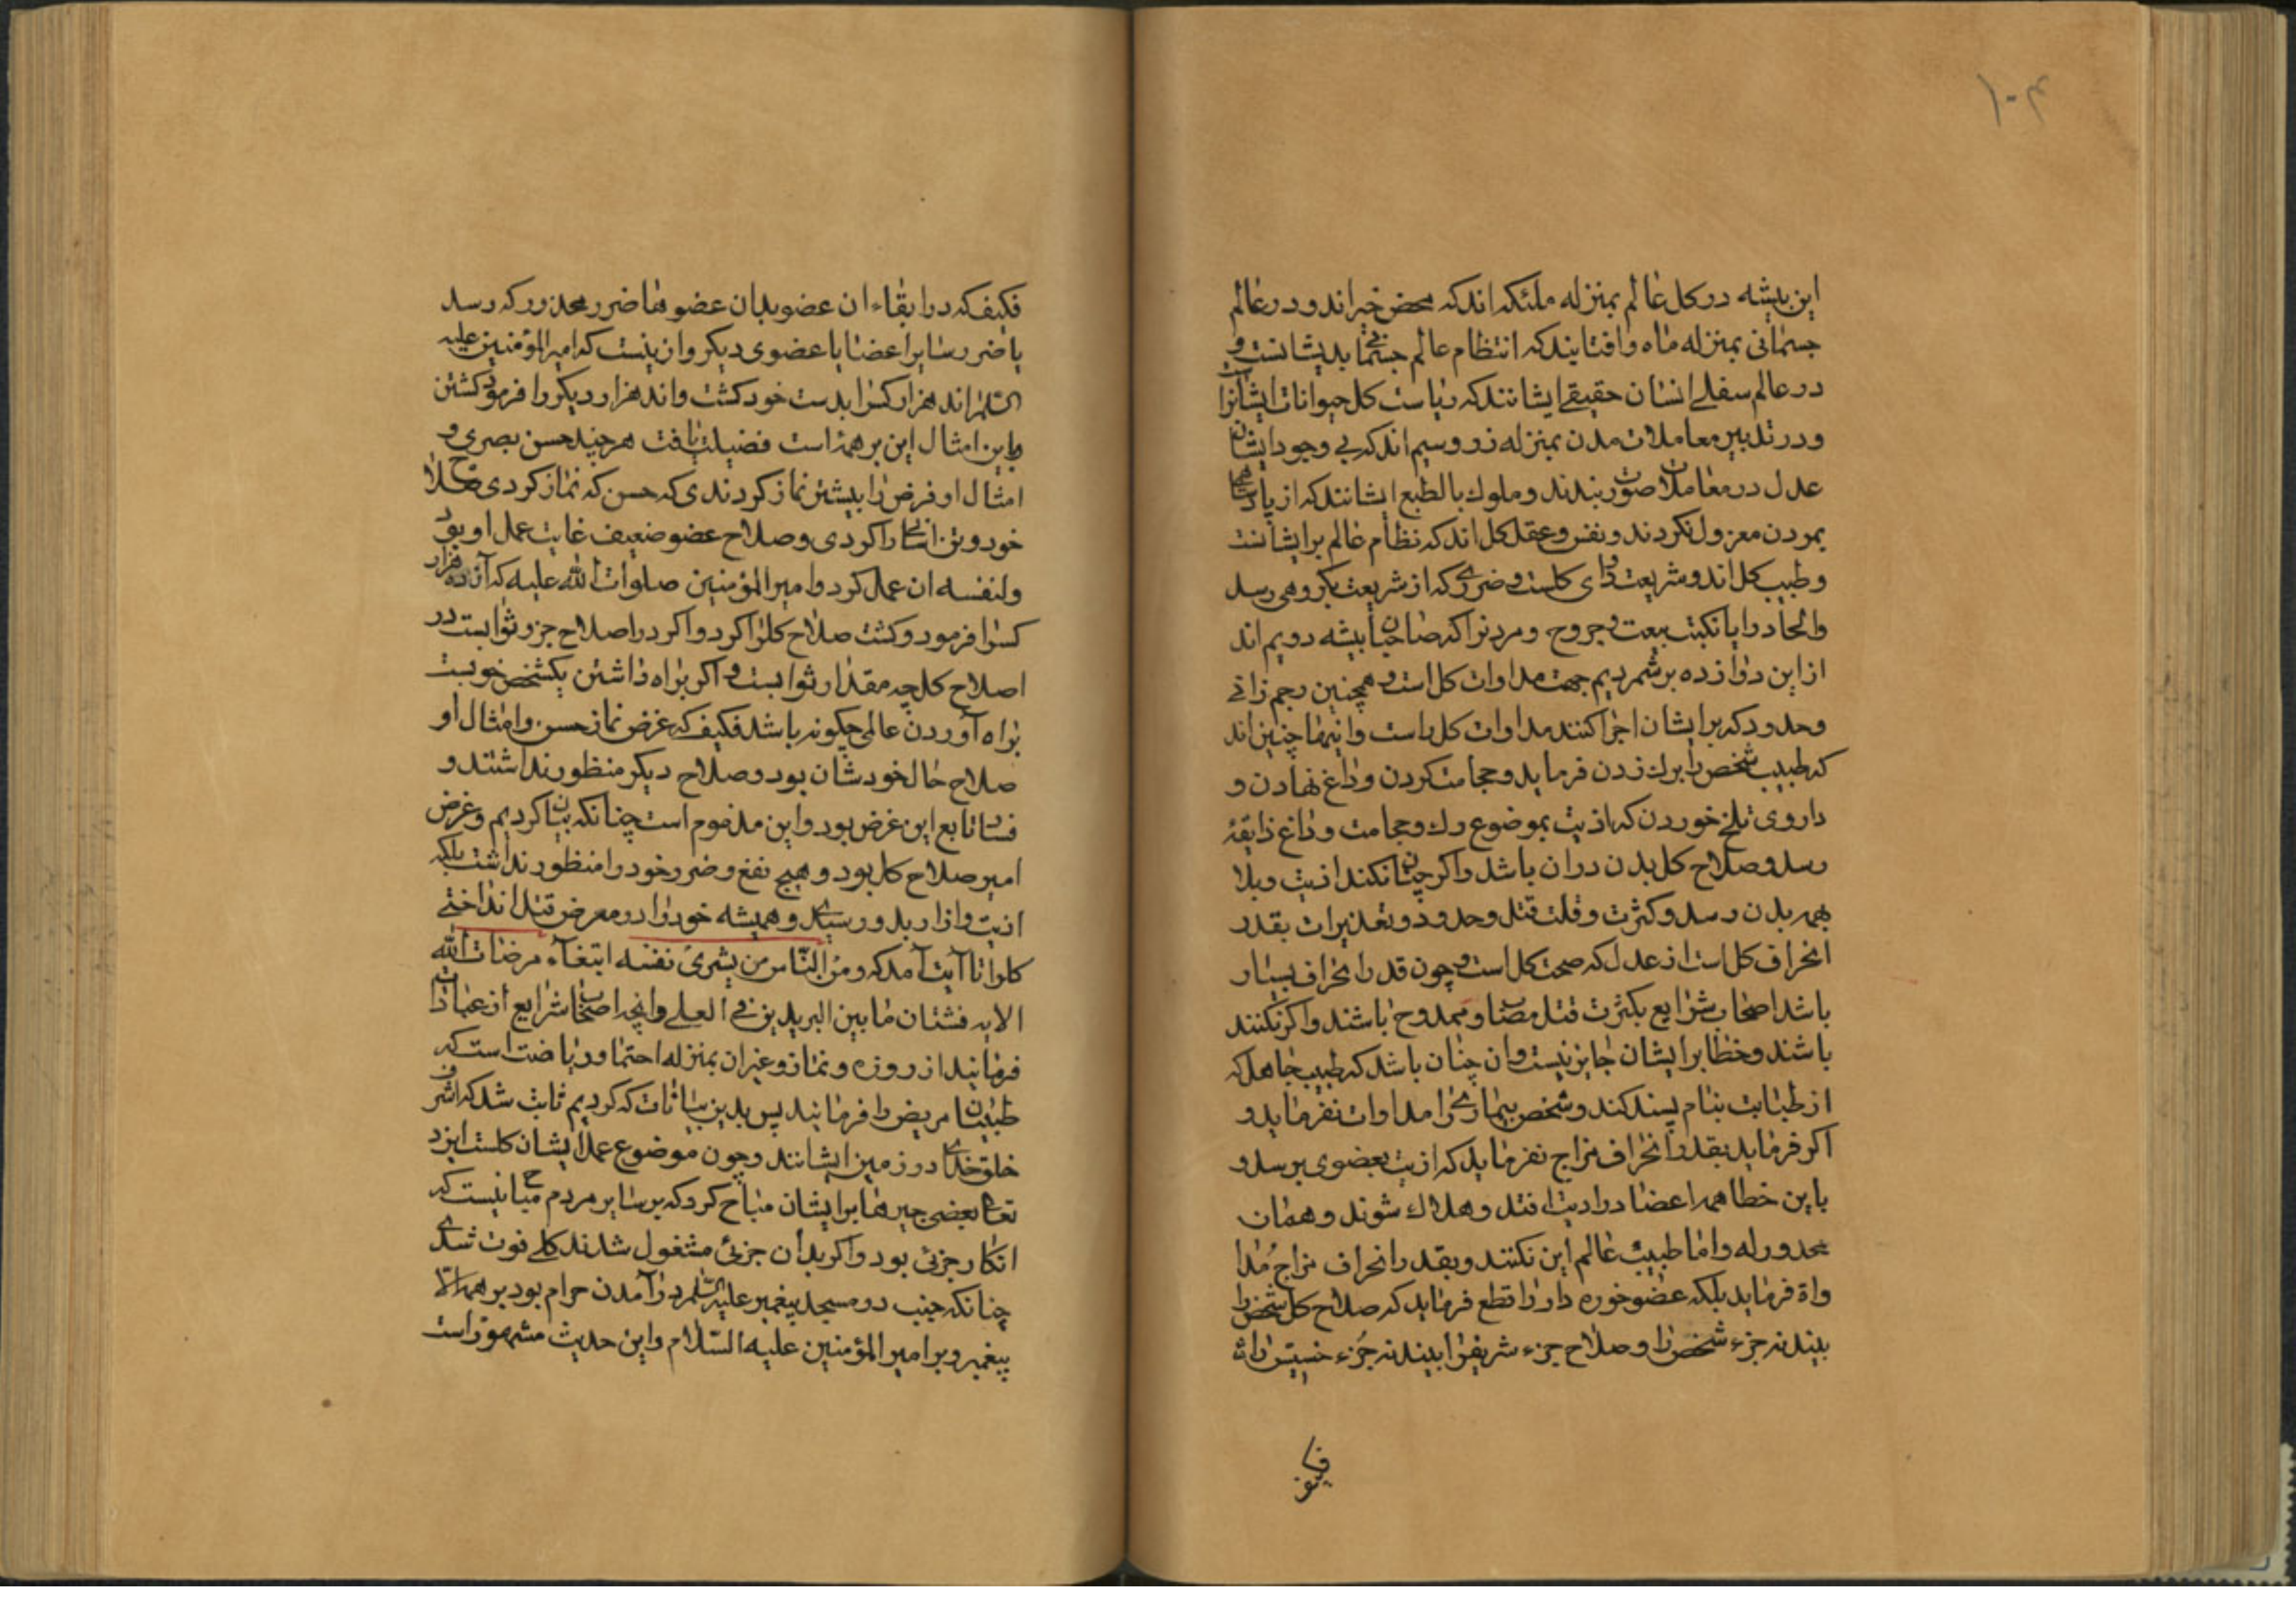 ۱۰۴
این پیشه در کل عالم بمنزله ملئکه اند که محض خیر اند و در عالم
جسمانی بمنزله ماه و افتابند که انتظام عالم جسمانی بدیشانست و
در عالم سفلی انسان حقیقی ایشانند که ریاست کل حیوانات ایشانراست
و در تدبیر معاملات مدن بمنزله زر و سیم اند که بی وجود ایشان
عدل در معاملات صورت نبندد و ملوک بالطبع ایشانند که از پادشاهی
بمردن معزول نکردند و نفس و عقل کل اند که نظام عالم برایشانست
و طبیب کل اند و شریعت دوای کلست و ضرری که از شریعت بکروهی رسد
والحاد را یا نکبت بیعت و جروح و مردنرا که صاحبان پیشه دویم اند
از این دوازده برشمردیم جهت مداوات کل است و همچنین رجم زانی
و حدود که بر ایشان اجرا کنند مداوات کل راست و اینها چنین اند
که طبیب شخص را برک زدن فرماید و حجامت کردن و داغ نهادن و
داروی تلخ خوردن که اذیت بموضوع رک و حجامت و داغ ذایقهٔ
رسد و صلاح کل بدن در ان باشد و اکر چنان نکند اذیت و بلا
بهمه بدن رسد و کثرت و قلت قتل و حدود و تعذیرات بقدر
انحراف کل است از عدل که صحت کل است و چون قدر انحراف بسیار
باشد اصحاب شرایع بکثرت قتل مصاب و ممدوح باشند و اکر نکنند
باشند و خطا بر ایشان جایز نیست و ان چنان باشد که طبیب جاهل که
از طبابت بنام پسند کند و شخص بیماری را مداوات نفرماید و
اکر فرماید بقدر انحراف مزاج نفرماید که اذیت بعضوی برسد و
باین خطا همه اعضا در اذیت افتد و هلاک شوند و همان
محذور له و اما طبیب عالم این نکند و بقدر انحراف مزاج مُدا
واة فرماید بلکه عضو خوره دار را قطع فرماید که صلاح کل شخص را
بیند نه جزء شخص را و صلاح جزء شریفرا بیند نه جزء خسیس را
فکیف
فکیف که در ابقاء ان عضو بدان عضوها ضرر محذور که رسد
یا ضرر سایر اعضا یا عضوی دیکر و از ینست که امیر المؤمنین علیه
السّلم اند هزار کسرا بدست خود کشت و اند هزار دیکر را فرمود کشتن
و باین امثال این بر همه امت فضیلت یافت هر چند حسن بصری و
امثال او فرض را بیشتر نماز کردندی که حسن که نماز کردی صلاح
خود و تن اسانی را کردی و صلاح عضو ضعیف غایت عمل او بود
ولنفسه ان عمل کرد و امیر المؤمنین صلوات الله علیه که آن ده هزار
کسرا فرمود و کشت صلاح کلرا کرد و اکر در اصلاح جزو ثوابست در
اصلاح کل چه مقدار ثوابست و اکر براه داشتن یکشخص خوبست
براه آوردن عالمی چکونه باشد فکیف که غرض نماز حسن و امثال او
صلاح حال خودشان بود و صلاح دیکر منظور نداشتند و
فساد تابع این غرض بود و این مذموم است چنانکه بیان کردیم و غرض
امیر صلاح کل بود و هیچ نفع و ضرر خود را منظور نداشت بلکه
اذیت و ازار بدو رسیدی و همیشه خود را در معرض قتل انداختی
کلرا تا آیت آمد که ومن النّاس من یشری نفسه ابتغآء مرضات الله
الایه فشتان مابین البریدین فی العلی و انچه اصحاب شرایع از عبادات
فرمایند از روزه و نماز و غیر ان بمنزله احتما و ریاضت است که
طبیبان مریض را فرمایند پس بدین بیانات که کردیم ثابت شد که اشرف
خلق خدای در زمین ایشانند و چون موضوع عمل ایشان کلست ایزد
تعالی بعضی چیزها بر ایشان مباح کرد که بر سایر مردم مباح نیست که
انکار جزئی بود و اکر بدان جزئی مشغول شدند کلی فوت شدی
چنانکه جنب در مسجد پیغمبر علیه السّلم در آمدن حرام بود بر همه الّا
پیغمبر و بر امیر المؤمنین علیه السّلام و این حدیث مشهور است